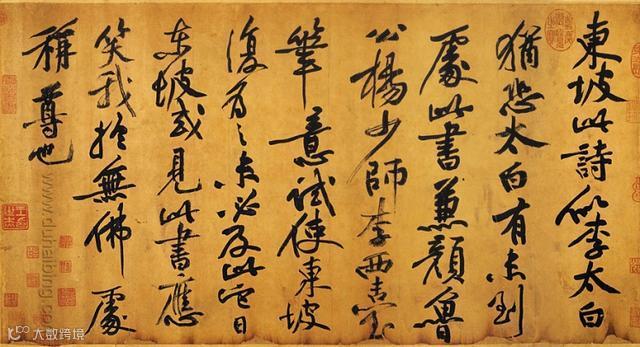 東坡此詩似李太白
猶恐太白有未到
處此書兼顏魯
公楊少師李西臺
筆意試使東坡
復為之未必及此它日
東坡或見此書應
笑我於無佛處
稱尊也
大数跨境